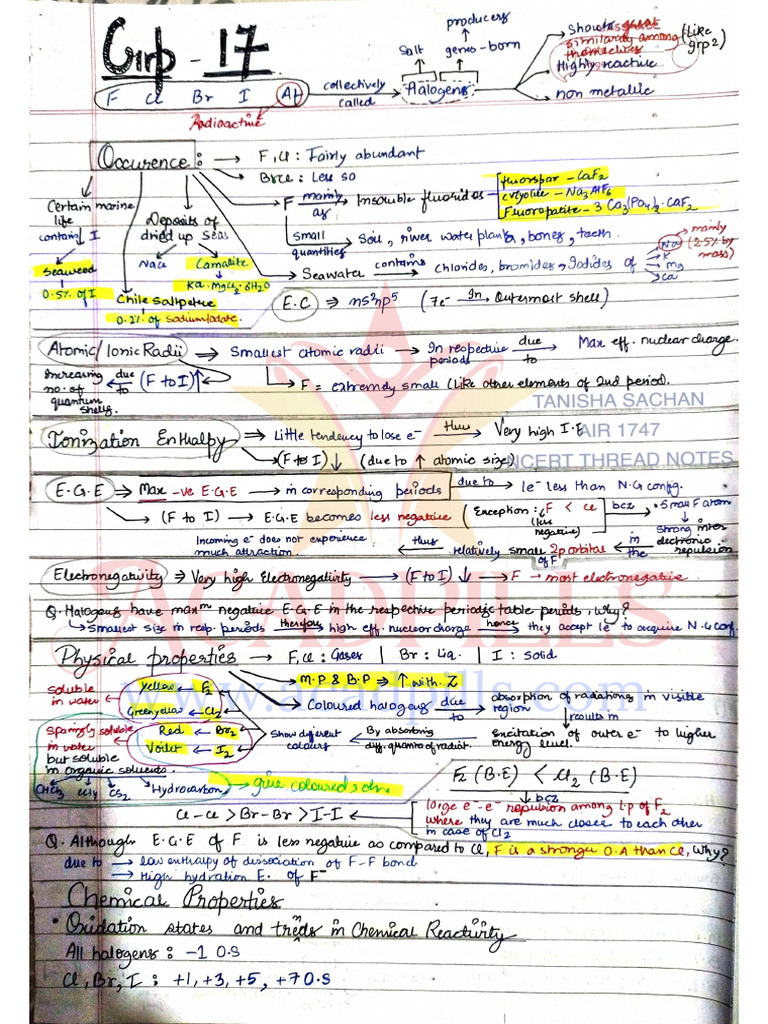 Grp - 17
F Cl Br I At
collectively called
Halogens
Salt
producers
genes-born
Shouts great similarity among themselves (Like grp 2)
Highly reactive
non metallic
Radioactive
Occurence :
→ F, Cl : Fairly abundant
→ Br & I : Less so
F mainly as → Insoluble fluorides
fluorspar - CaF2
cryolite - Na3AlF6
Fluorapatite - 3Ca3(PO4)2.CaF2
small quantities → Soil, river water plants, bones, teeth.
Seawater contains → chlorides, bromides, Iodides of
Na mainly (2.5% by mass)
K
Mg
Ca
Certain marine life contains I
Seaweed
0.5% of I
Deposits of dried up seas
NaCl
Carnalite
KCl.MgCl2.6H2O
Chile Saltpetre
0.2% of sodium Iodate
E.C ⇒ ns²np⁵ (7e⁻ In→ Outermost shell)
Atomic/Ionic Radii ⇒ Smallest atomic radii → In respective periods due to → Max eff. nuclear charge.
Increasing no. of quantum shells. ← due to (F to I)↑
→ F = extremely small (Like other elements of 2nd period).
TANISHA SACHAN
AIR 1747
NCERT THREAD NOTES
Ionization Enthalpy ⇒ Little tendency to lose e⁻ thus → Very high I.E
→ (F to I) ↓ (due to ↑ atomic size)
E.G.E ⇒ Max -ve E.G.E → in corresponding periods due to → 1e⁻ less than N.G config.
→ (F to I) → E.G.E becomes less negative (Exception : F < Cl (less negative)) bcz → Small F atom
Strong inter electronic repulsion
in the ← relatively small 2p orbital of F
thus ← Incoming e⁻ does not experience much attraction.
Electronegativity ⇒ Very high Electronegativity → (F to I) ↓ → F → most electronegative
Q. Halogens have maxᵐ negative E.G.E in the respective periodic table periods, why?
→ Smallest size in resp. periods therefore → high eff. nuclear charge hence → they accept 1e⁻ to acquire N.G conf.
ACADPILLS
www.acadpills.com
Physical properties → F, Cl : Gases | Br : Liq. | I : Solid
→ M.P & B.P ⇒ ↑ with Z
→ Coloured halogens due to → absorption of radiations in visible region
↓ results in
Excitation of outer e⁻ to higher energy level.
By absorbing diff. quanta of radiat.
Show different colours
soluble in water
Yellow ← F2
Green yellow ← Cl2
Sparingly soluble in water but soluble in organic solvents.
Red ← Br2
Voilet ← I2
CHCl3 CCl4 CS2 Hydrocarbon
→ give coloured soln.
F2 (B.E) < Cl2 (B.E)
↓ bcz
large e⁻-e⁻ repulsion among l.p of F2 where they are much closer to each other in case of Cl2
Cl-Cl > Br-Br > I-I ←
Q. Although E.G.E of F is less negative as compared to Cl, F is a stronger O.A than Cl, why?
due to → low enthalpy of dissociation of F-F bond
→ High hydration E. of F⁻
Chemical Properties
• Oxidation states and trends in Chemical Reactivity
All halogens : -1 O.S
Cl, Br, I : +1, +3, +5, +7 O.S